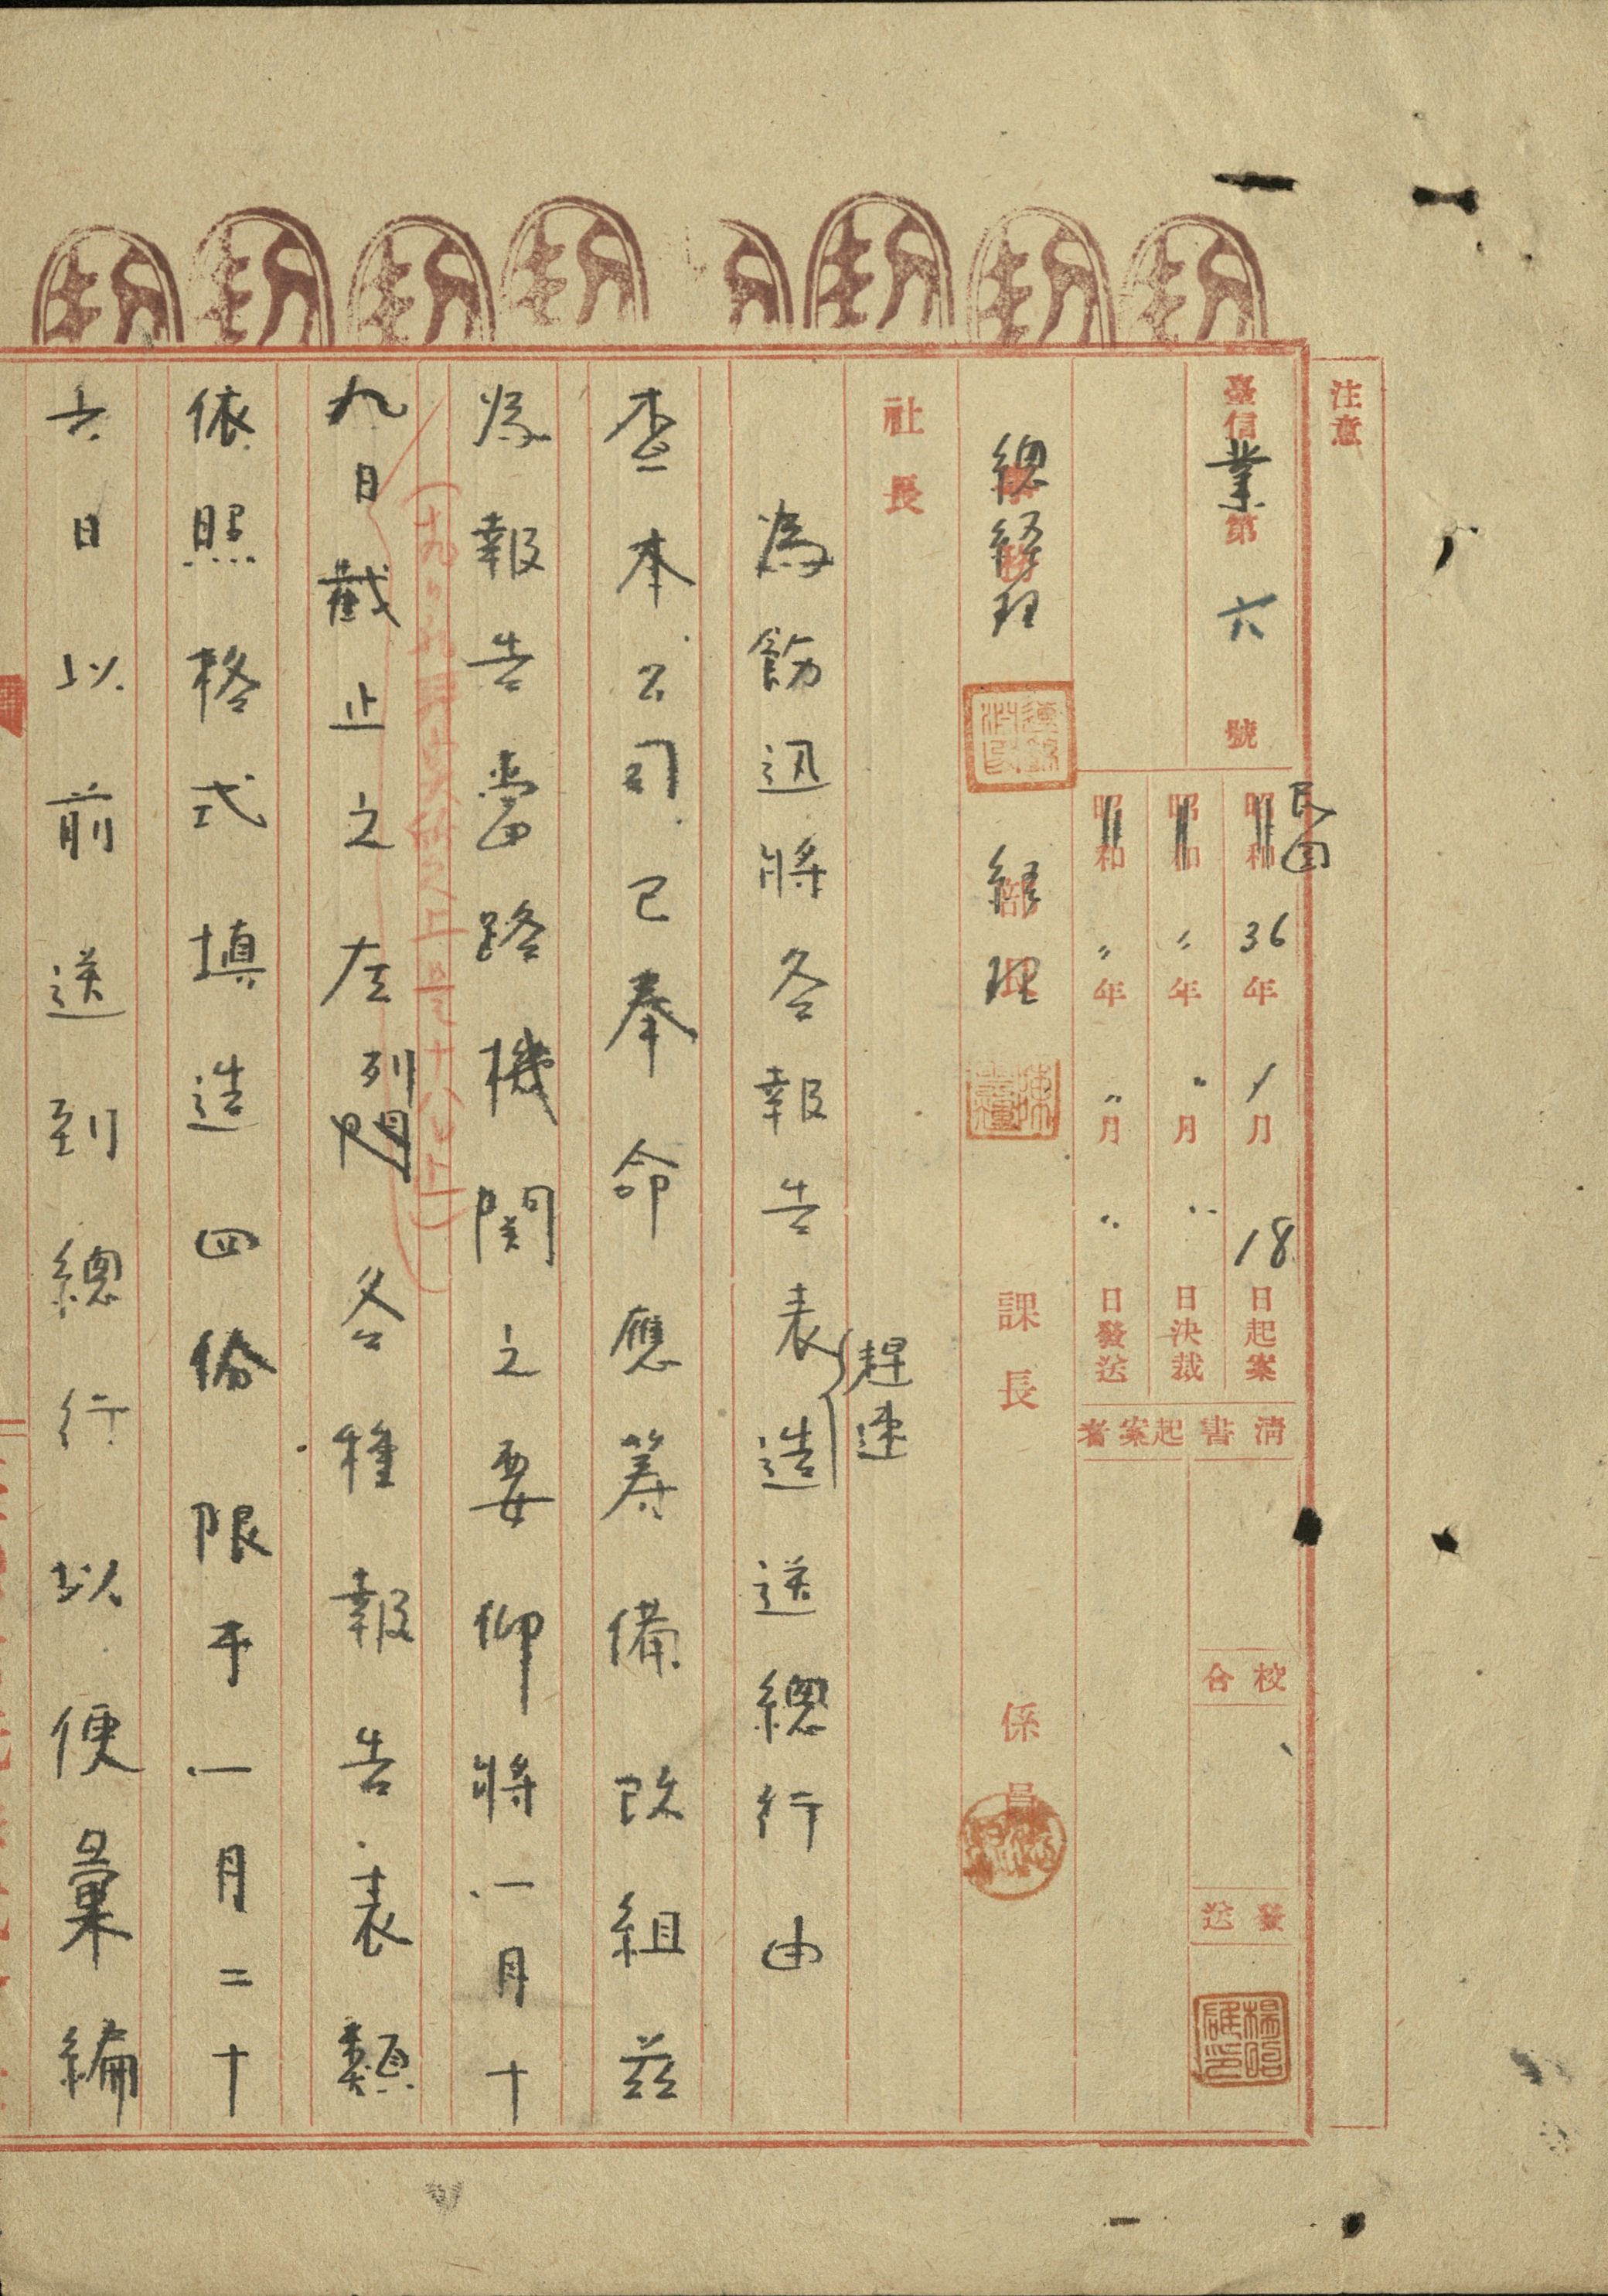 注意
臺信業第六號
民國
昭和36年1月18日起案
昭和〃年〃月〃日決裁
昭和〃年〃月〃日發送
清書
起案者
校合
發送
總經理
經理
課長
係長
社長
趕速
為飭迅將各報告表造送總行由
查本公司已奉命應籌備改組茲
為報告當路機關之要仰將一月十
九日截止之左列各種報告表類
依照格式填造四份限于一月二十
六日以前送到總行以便彙編